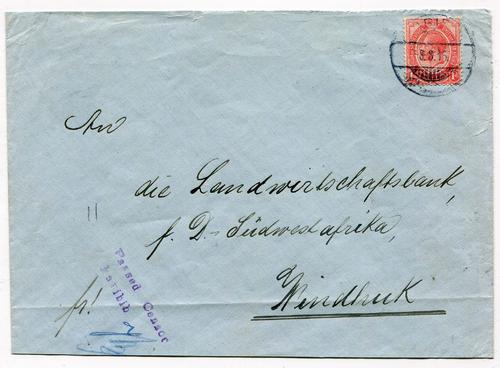 3.8.15
An
die Landwirtschaftsbank,
f. D.-Südwestafrika,
Windhuk
fr!
Passed Censor
Karibib